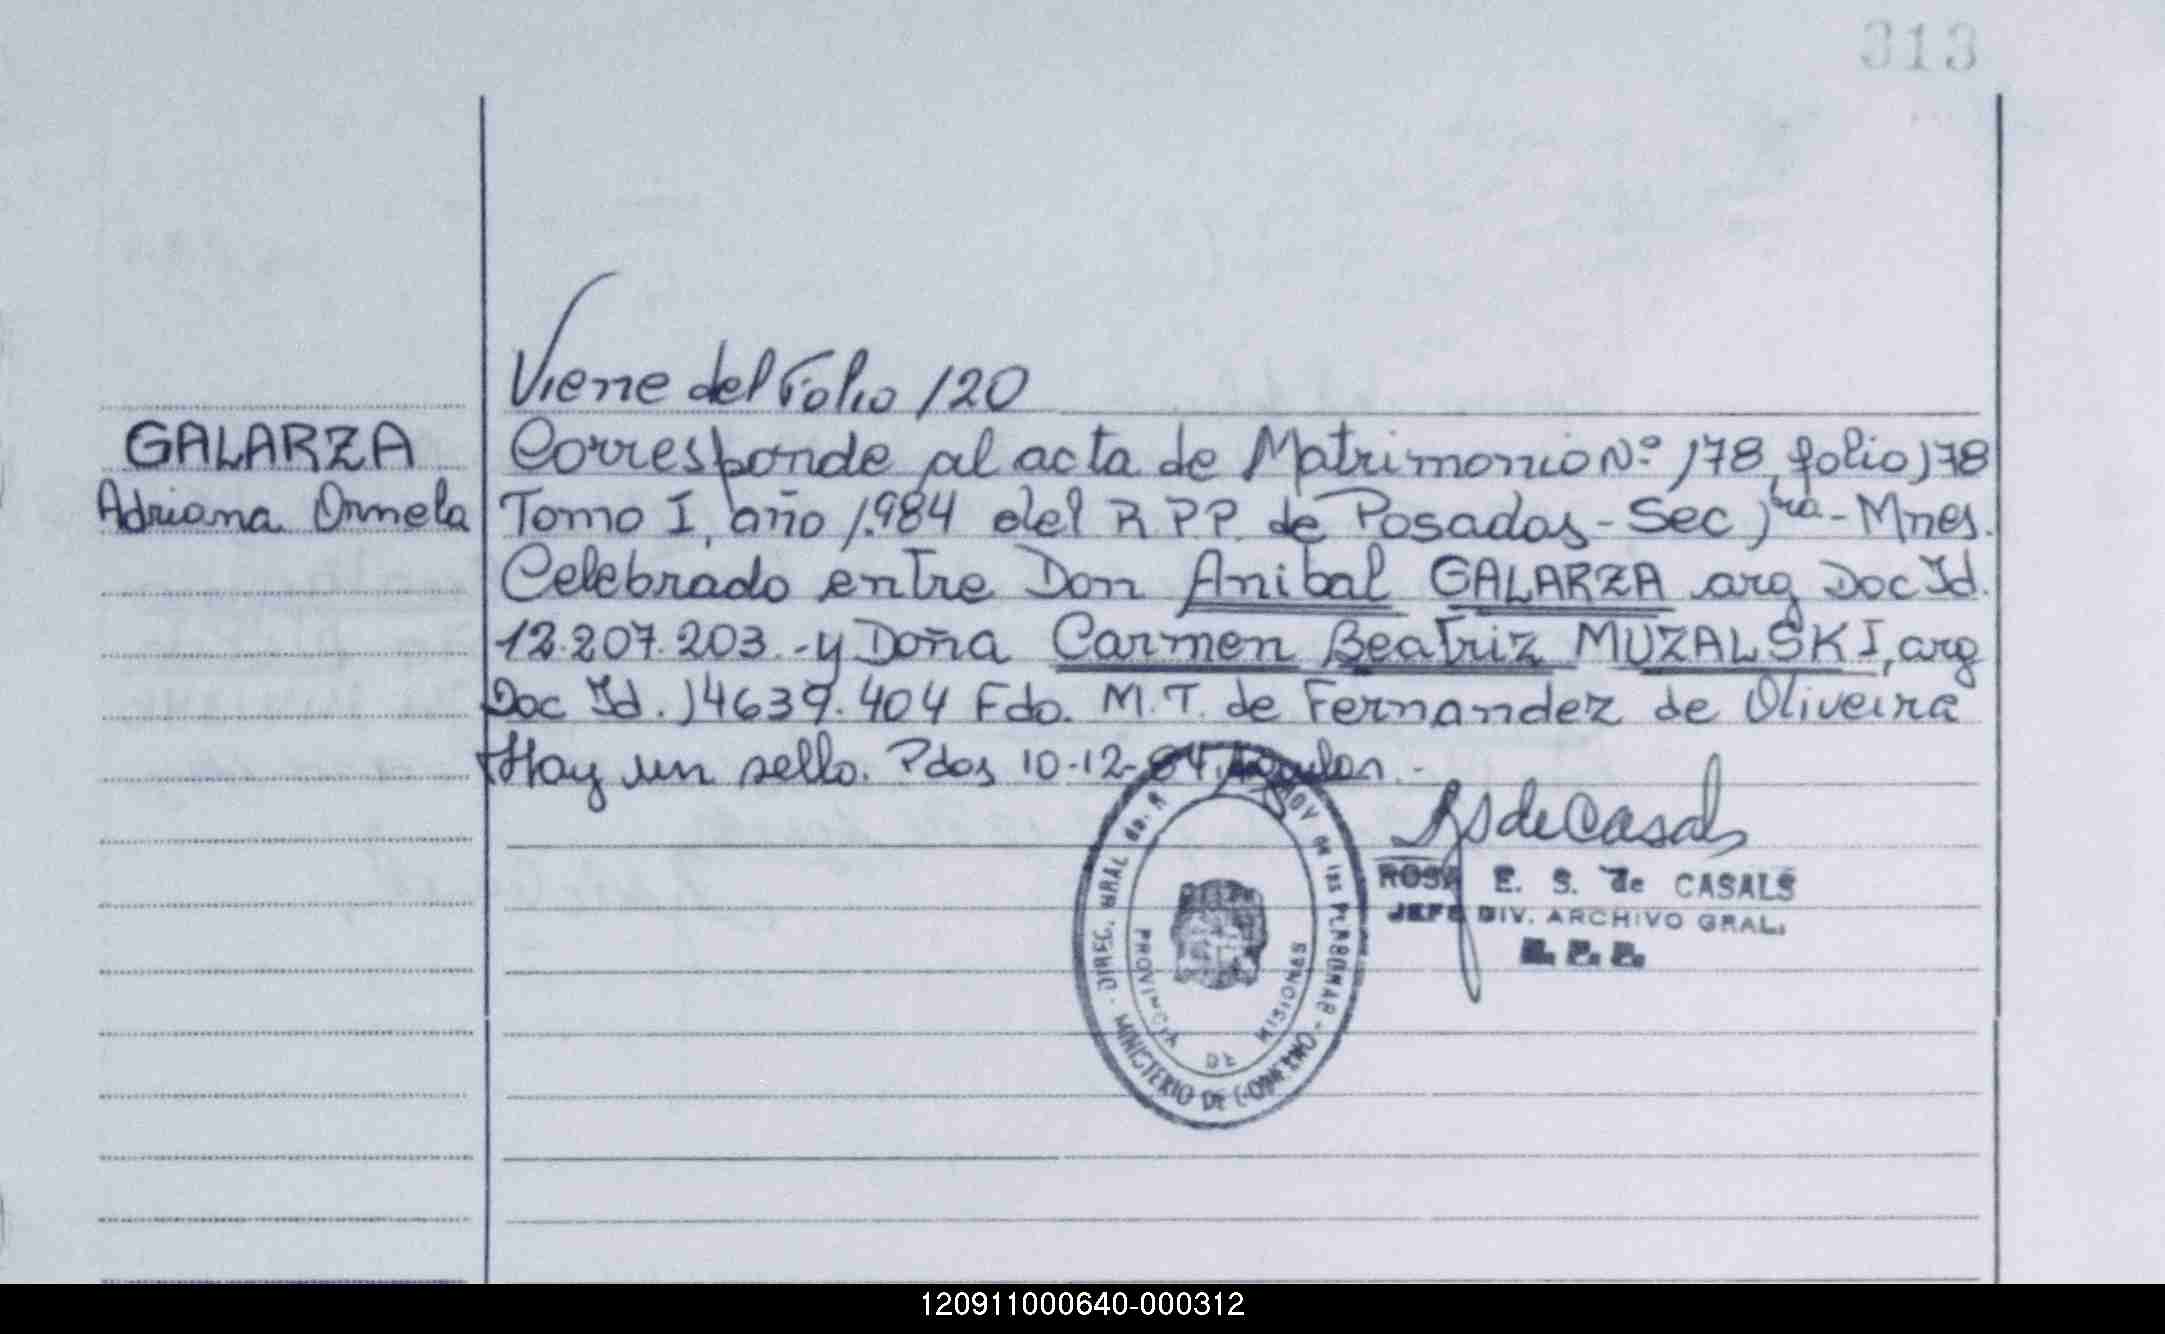 313
Viene del Folio 120
GALARZA
Adriana Ornela
Corresponde al acta de Matrimonio Nº 178, folio 178
Tomo I, año 1.984 del R.P.P. de Posadas - Sec 1ra - Mnes.
Celebrado entre Don Anibal GALARZA arg Doc Id.
12.207.203.- y Doña Carmen Beatriz MUZALSKI, arg
Doc Id. 14639.404 Fdo. M.T. de Fernandez de Oliveira
Hay un sello. Pdos 10-12-84.
RS de Casals
ROSA E. S. de CASALS
JEFE DIV. ARCHIVO GRAL.
R. P. P.
DIREC. GRAL. de las PERSONAS
MINISTERIO DE GOBIERNO
PROVINCIA DE MISIONES
120911000640-000312